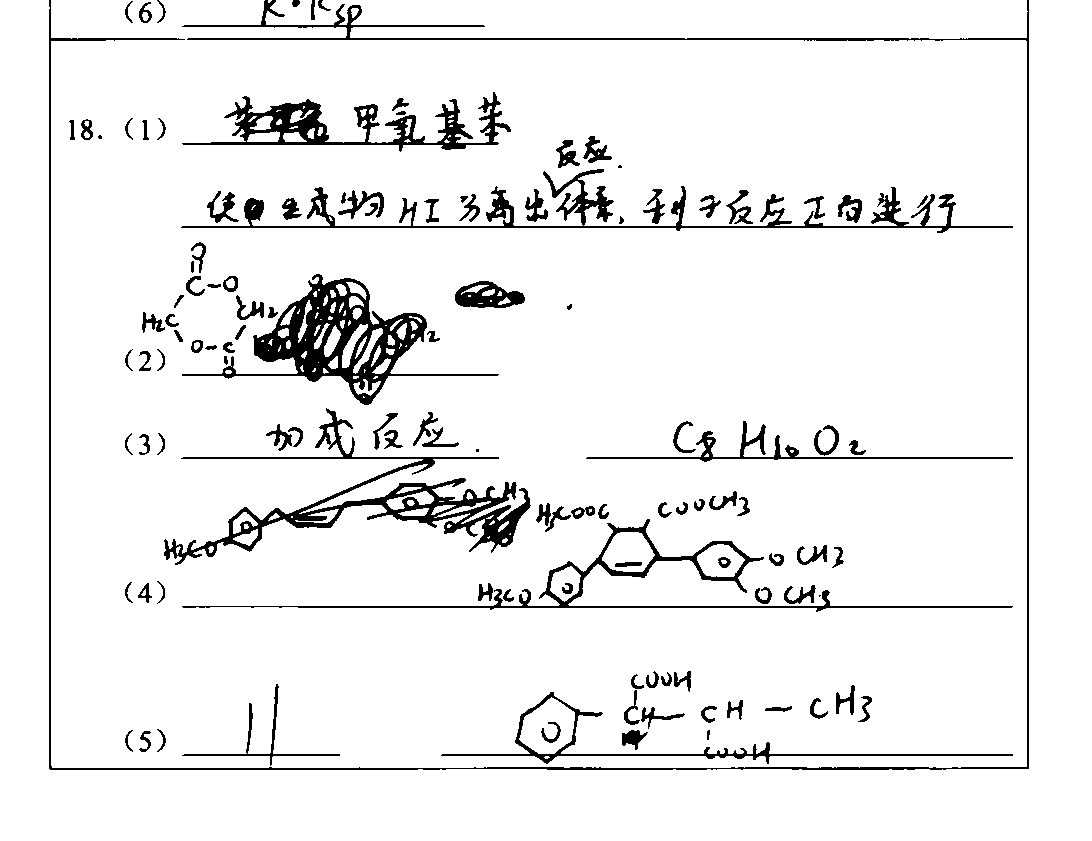 (6) K·Ksp
18. (1) 甲氧基苯
反应.
使生成物HI分离出体系,利于反应正向进行
O
C-O
H2C CH2
O-C
(2) O
(3) 加成反应. C8H10O2
H3CO OCH3
H3COOC COOCH3
OCH3
(4) H3CO OCH3
COOH
CH-CH-CH3
(5) 11 COOH